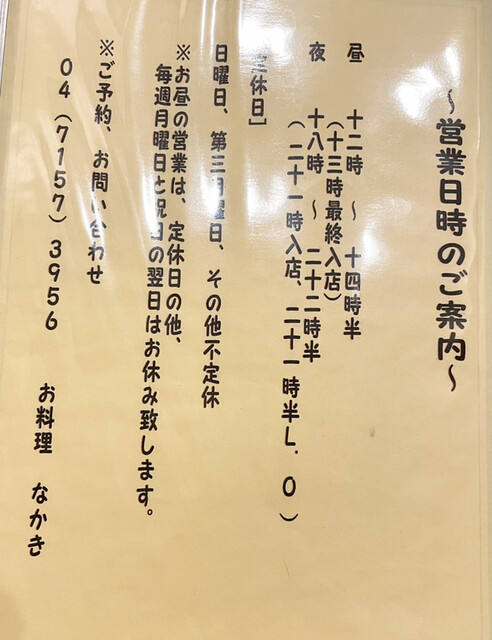 ～営業日時のご案内～
昼 十二時 ～ 十四時半
(十三時最終入店)
夜 十八時 ～ 二十二時半
(二十一時入店、二十一時半L.O)
定休日]
日曜日、第三月曜日、その他不定休
※お昼の営業は、定休日の他、
毎週月曜日と祝日の翌日はお休み致します。
※ご予約、お問い合わせ
04(7157)3956 お料理 なかき